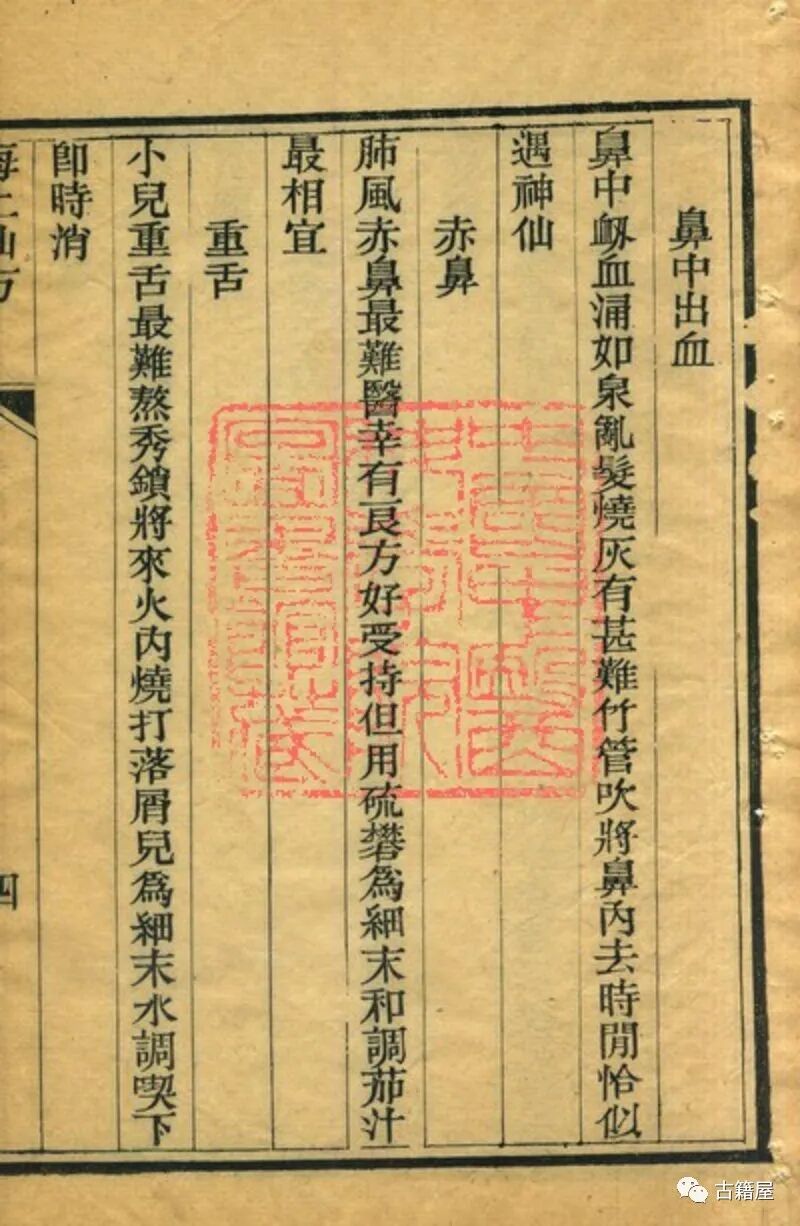 鼻中出血
鼻中衂血涌如泉亂髮燒灰有甚難竹管吹將鼻內去時閒恰似
遇神仙
赤鼻
肺風赤鼻最難醫幸有良方好受持但用硫礬為細末和調茄汁
最相宜
重舌
小兒重舌最難熬秀鎖將來火內燒打落屑兒為細末水調喫下
卽時消
海上仙方
四
古籍屋